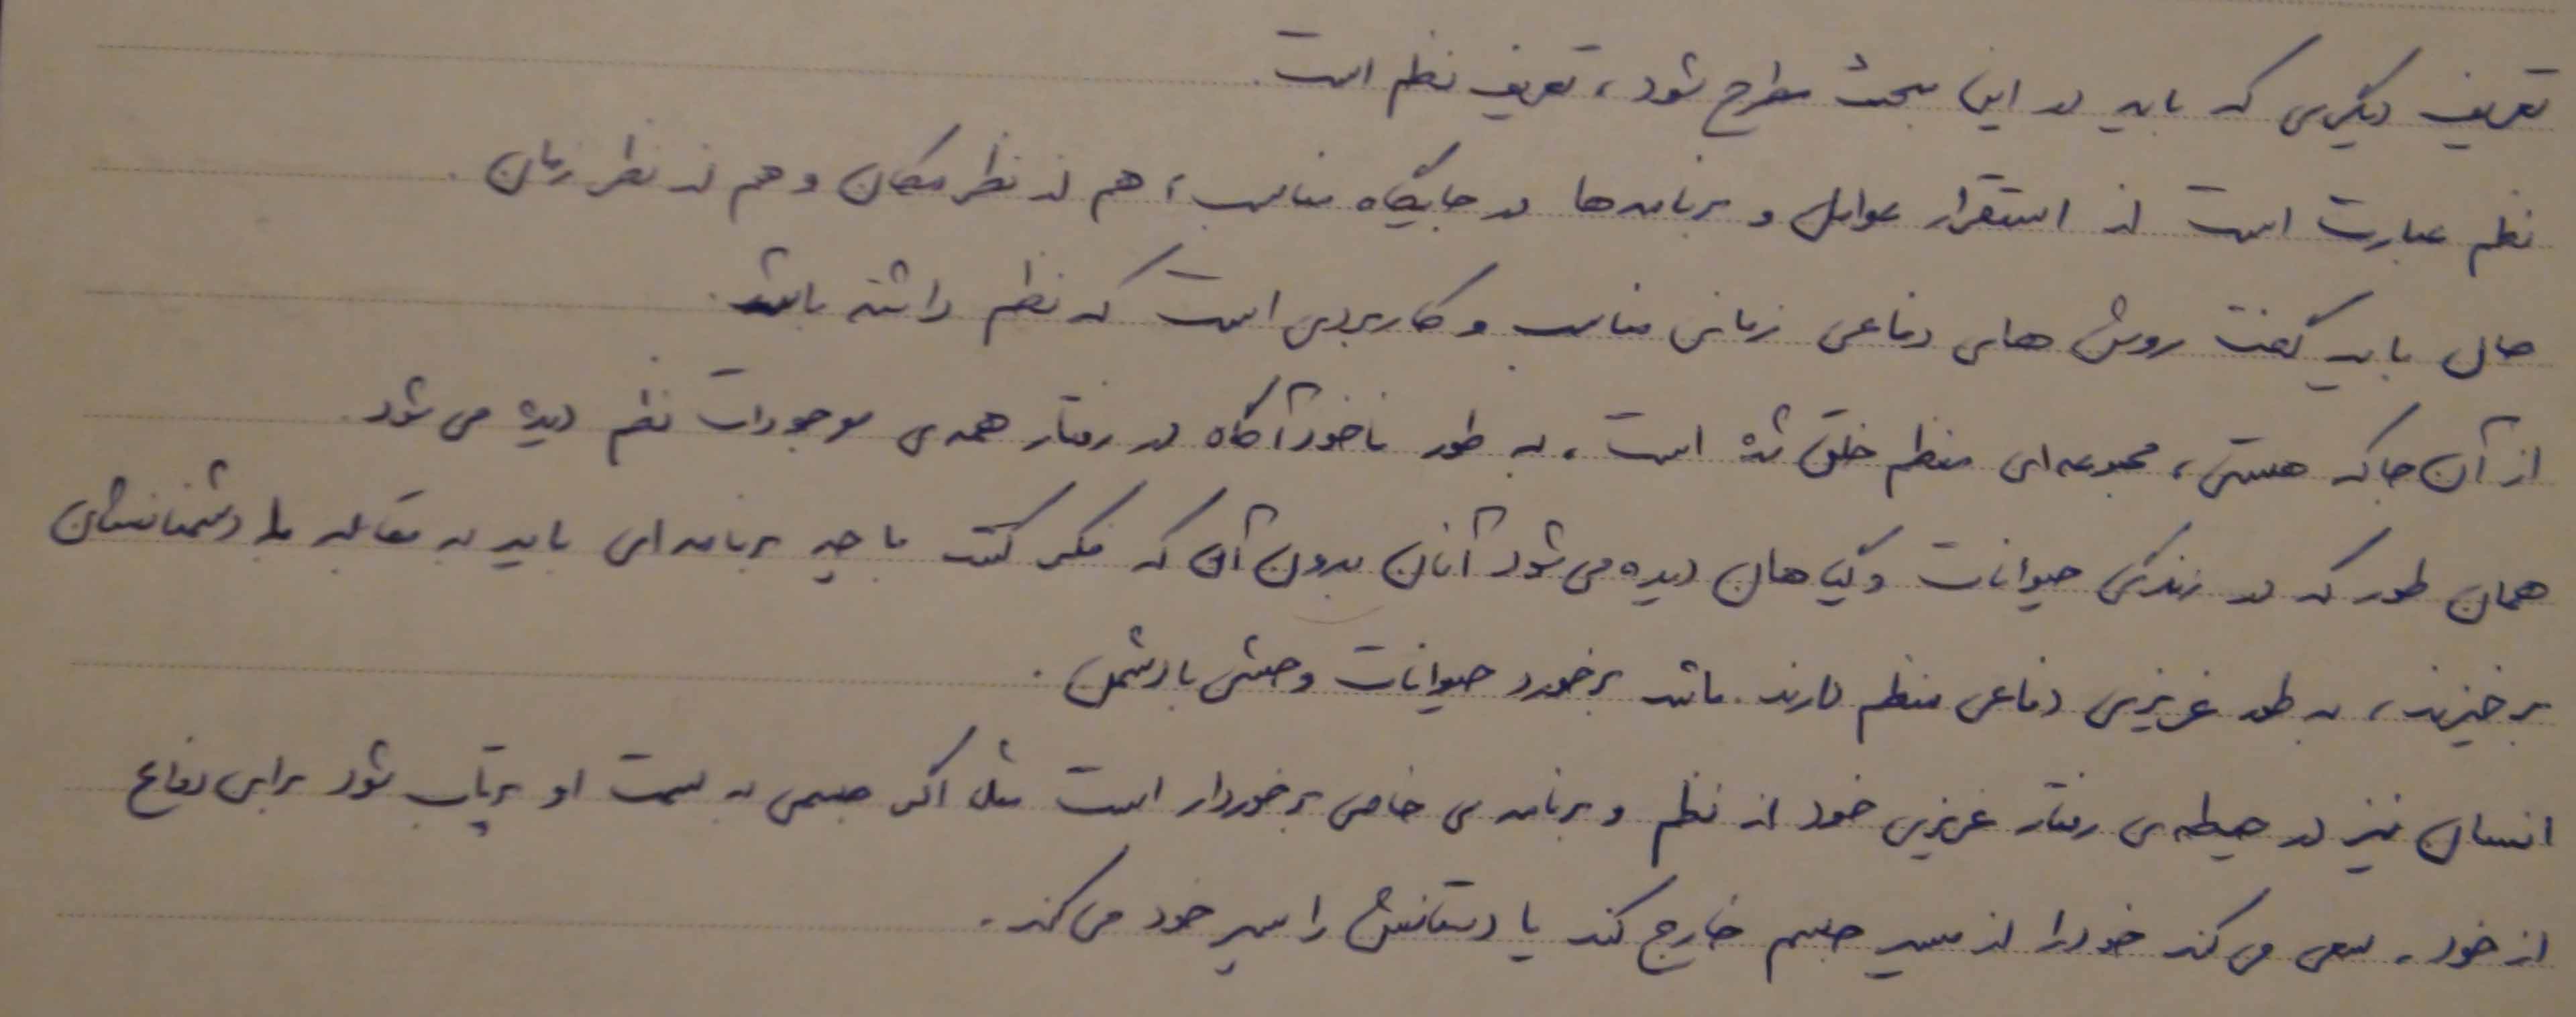 تعریف دیگری که باید در این مبحث مطرح شود، تعریف نظم است.
نظم عبارت است از استقرار عوامل و برنامه‌ها در جایگاه مناسب، هم از نظر مکان و هم از نظر زمان.
حال باید گفت روش های دفاعی زمانی مناسب و کاربردی است که نظم داشته باشد.
از آن جا که هستی، مجموعه‌ای منظم خلق شده است، به طور ناخودآگاه در رفتار همه‌ی موجودات نظم دیده می شود.
همان طور که در زندگی حیوانات و گیاهان دیده می شود آنان بدون آن که فکر کنند با چه برنامه‌ای باید به مقابله با دشمنانشان
برخیزند، به طور غریزی دفاعی منظم دارند. مانند برخورد حیوانات وحشی با دشمن.
انسان نیز در حیطه‌ی رفتار غریزی خود از نظم و برنامه‌ی خاصی برخوردار است مثلا اگر جسمی به سمت او پرتاب شود برای دفاع
از خود، سعی می کند خود را از مسیر جسم خارج کند یا دستانش را سپر خود می کند.